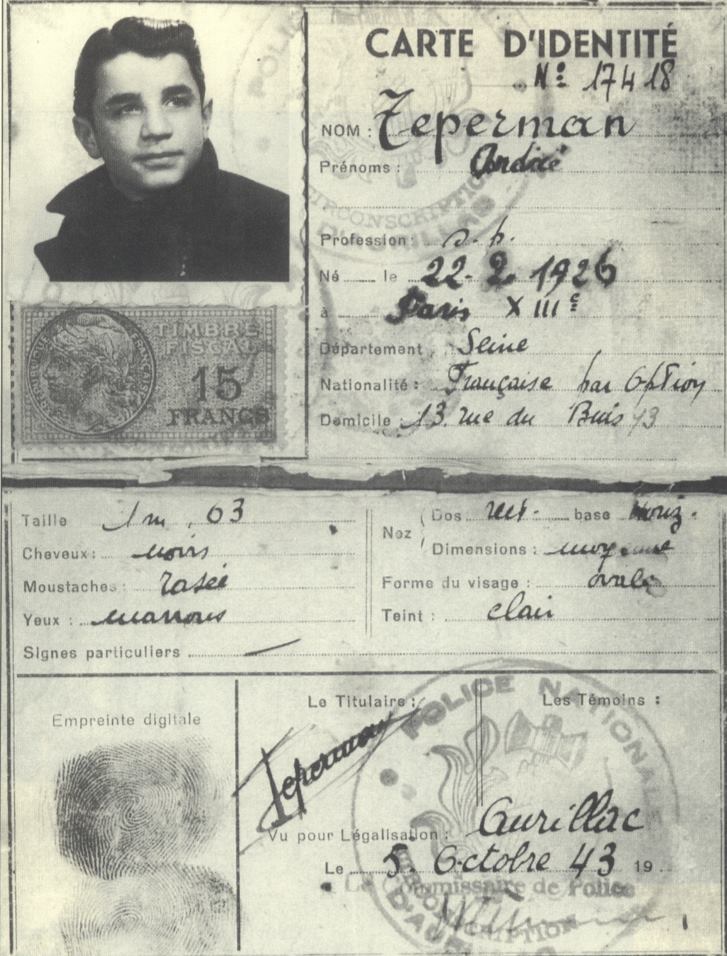 CARTE D'IDENTITÉ
Nº 17418
NOM : Zeperman
Prénoms : André
Profession : s. p.
Né le 22-2-1926
à Paris XIIIe
Département Seine
Nationalité : Française par option
Domicile : 13 rue du Buis 13
TIMBRE
FISCAL
15
FRANCS
Taille 1m,63
Cheveux : noirs
Moustaches : rasée
Yeux : marrons
Signes particuliers —
Nez
Dos rect. base horiz.
Dimensions : moyenne
Forme du visage : ovale
Teint : clair
Empreinte digitale
Le Titulaire :
Zeperman
Les Témoins :
POLICE NATIONALE
CIRCONSCRIPTION
D'AURILLAC
Vu pour Légalisation : Aurillac
Le 5 Octobre 43 19
Le Commissaire de Police